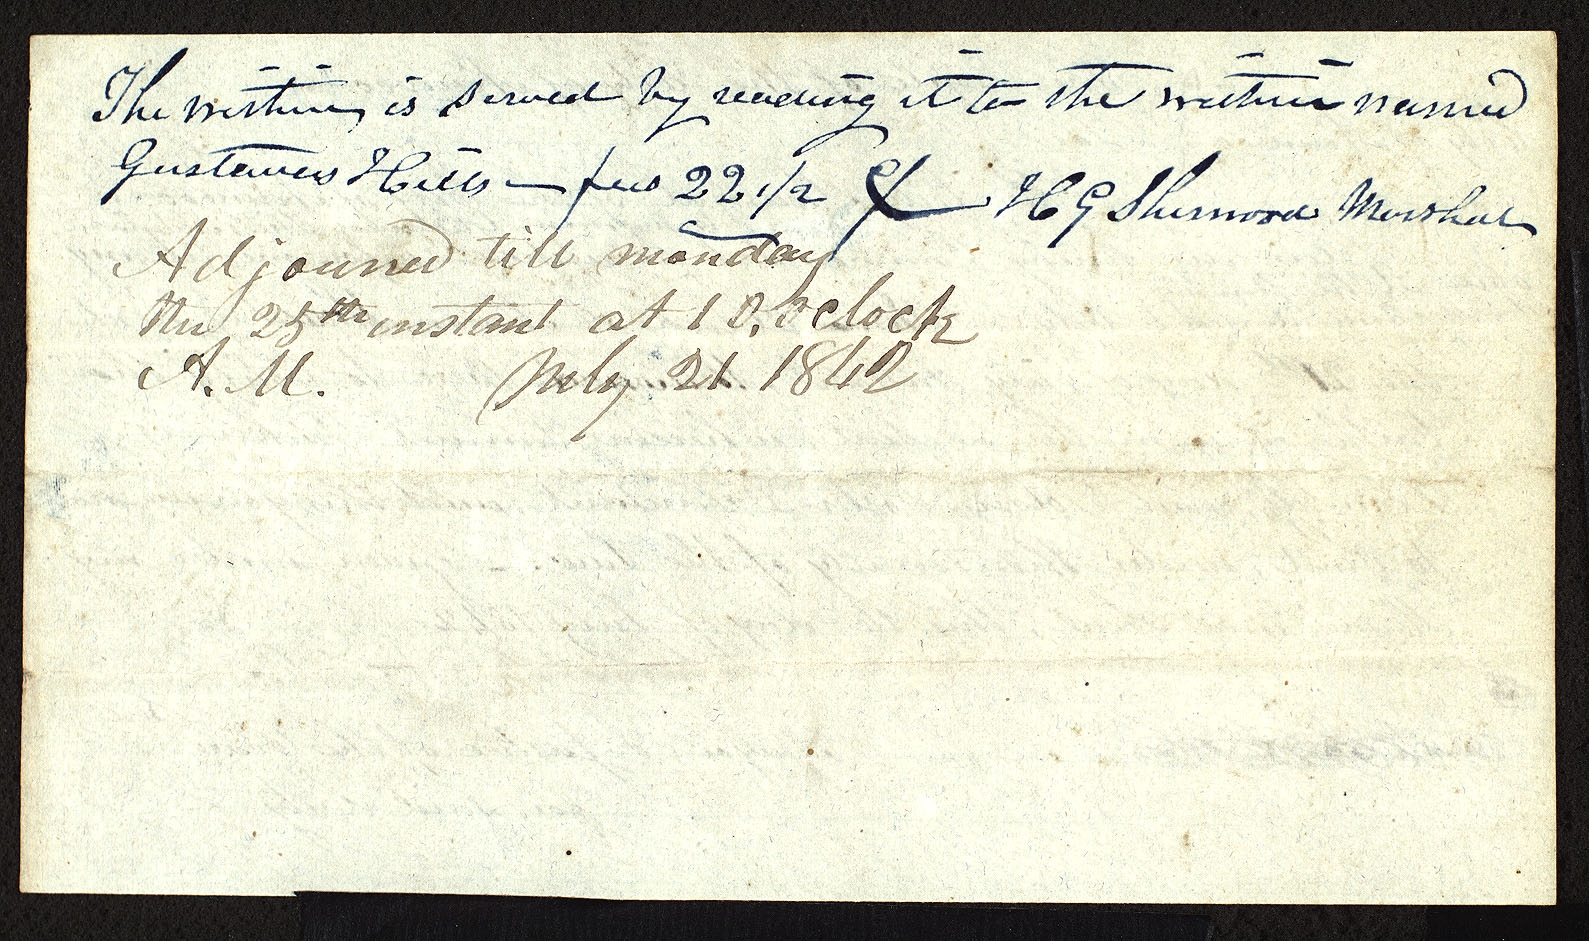 The within is served by reading it to the within named
Gustavus Hills — fees 22 1/2 H G Sherwood Marshal
Adjourned till monday
the 25th instant at 10, oclock
A. M. July 21 1842